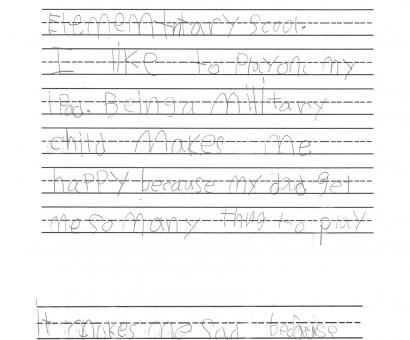 Elementary Scool.
I like to Playonc my
IPad. Being a military
child Makes me
haPPY because my dad get
me so many thing to play
It makes me sad because